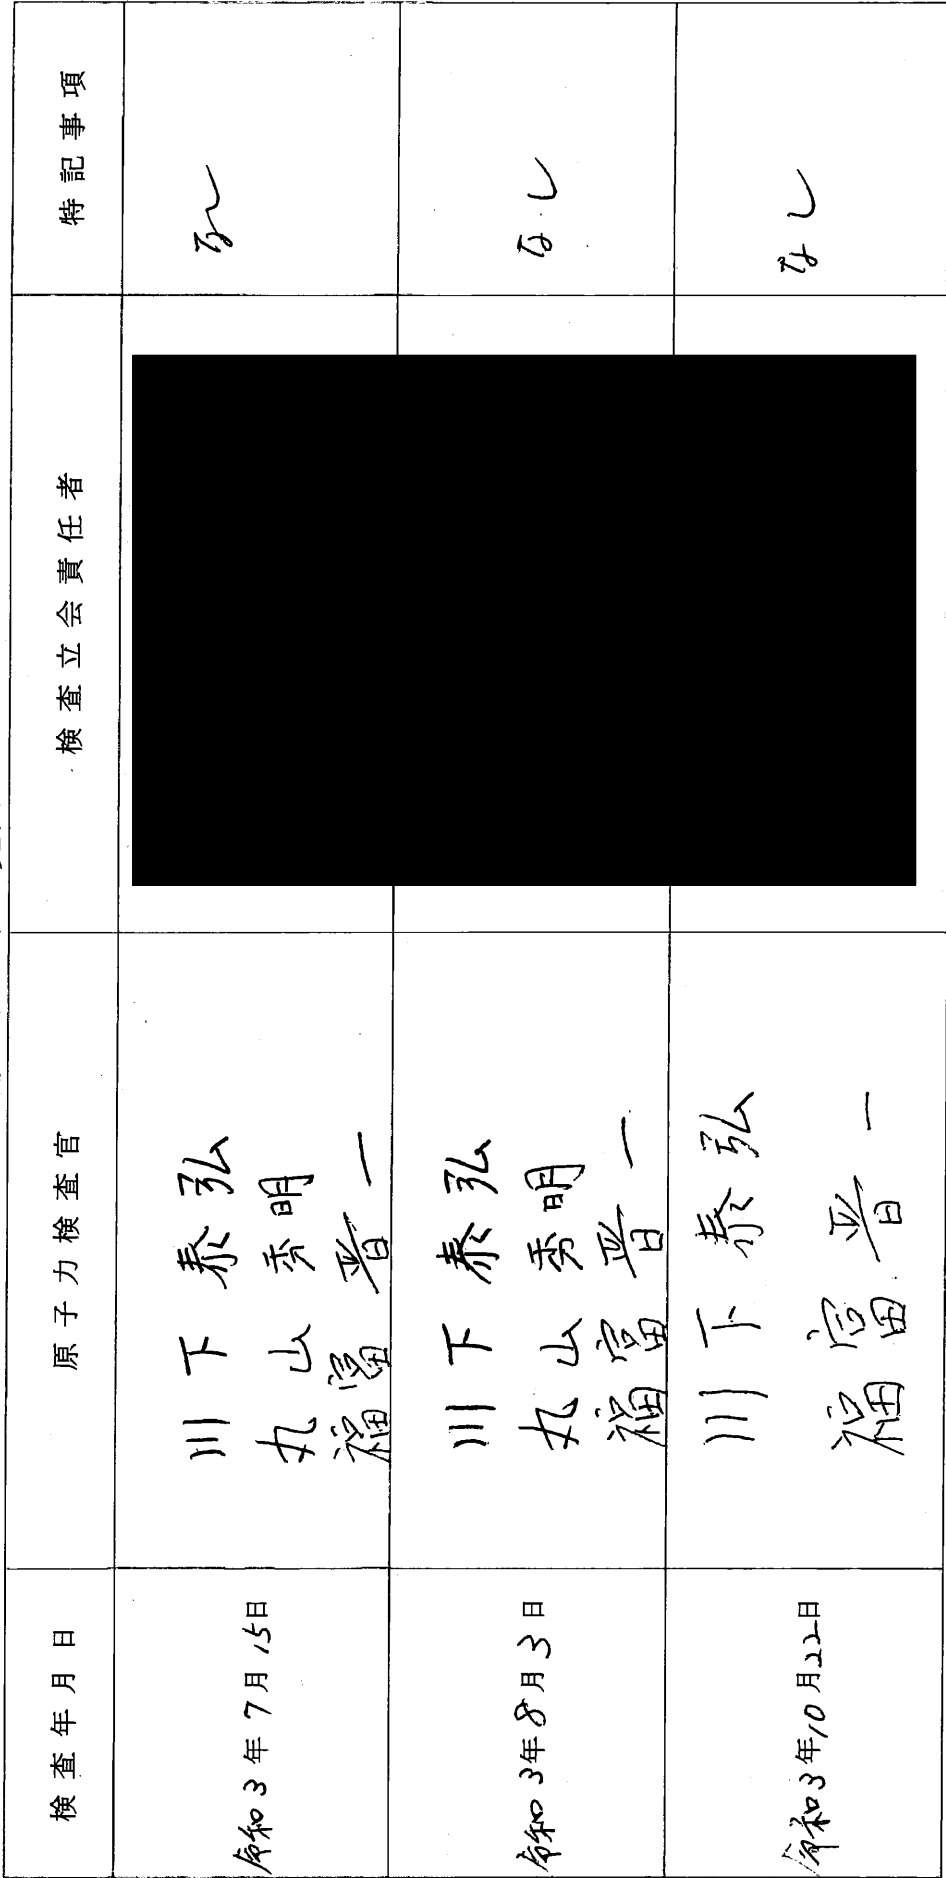 検査年月日
原子力検査官
検査立会責任者
特記事項
令和3年7月15日
川下泰弘
丸山秀明
福冨晋一
なし
令和3年8月3日
川下泰弘
丸山秀明
福冨晋一
なし
令和3年10月22日
川下泰弘
福冨晋一
なし